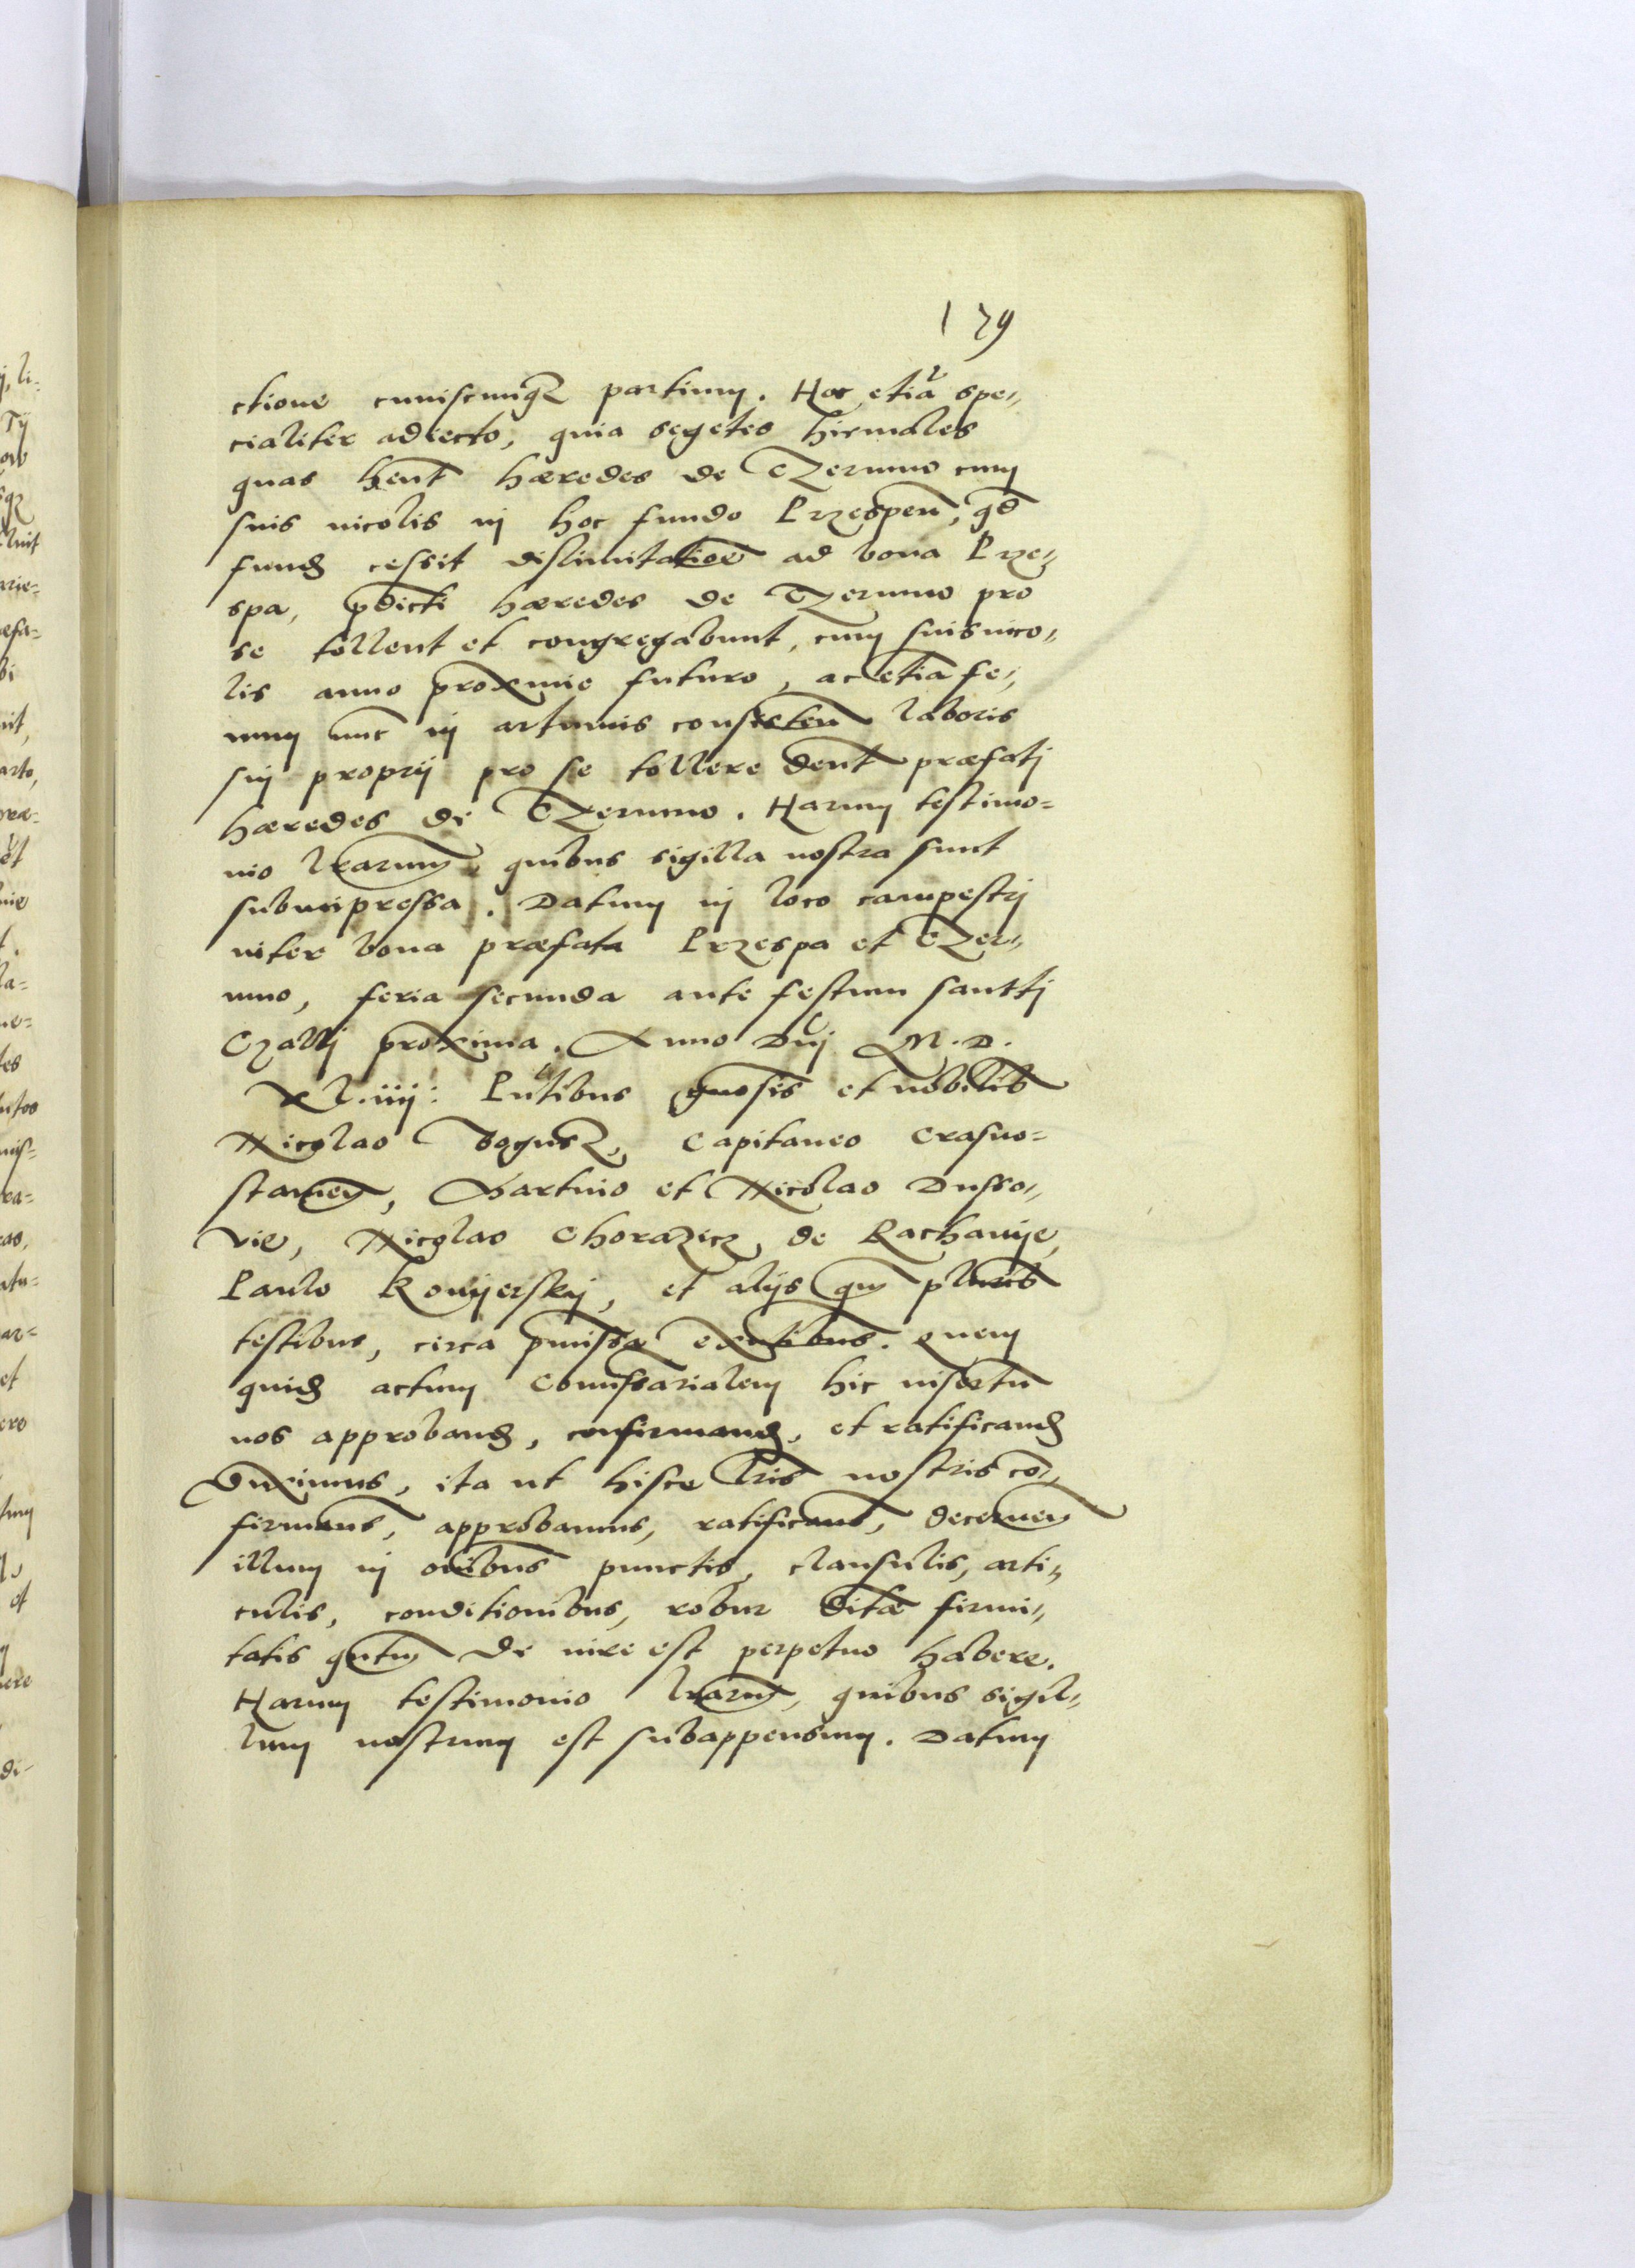 179
ctione cuiuscunq₃ partium. Hoc etiā spe„
cialiter adiecto, quia segetes hiemales
quas hent hæredes de Czermno cum
suis incolis in hoc fundo Przespen̄, qd
fund₃ cessit dislimitatioē ad bona Prze„
spa, pdicti hæredes de Czermno pro
se tollent et congregabunt, cum suis inco„
lis anno proxime futuro, ac etiā fe„
num nūc in artumis consisten̄ laboris
sui proprij pro se tollere debent præfati
hæredes de Czermno. Harum testimo=
nio lrarum quibus sigilla nostra sunt
subimpressa. Datum in loco campestri
inter bona præfata Przespa et Czer„
mno, feria secunda ante festum sancti
Galli proxima. Anno Dnj M.D.
XL.iiij: Pn̄tibus gnosis et nobilib
Nicolao Bogusz, Capitaneo Crasno=
stamen̄, Martino et Nicolao Dusso„
vie, Nicolao Chorazicz de Rachanije,
Paulo Konijerskij, et alijs qm̄ plurib
testibus, circa pmissa exn̄tibus. Quem
quid₃ actum Comissarialem hic insertū
nos approband₃, confirmand₃, et ratificand₃
duximus, ita ut hisce lris nostris cō„
firmams, approbamus, ratificams, decernen̄
illum in oībus punctis, clausulis, arti„
culis, conditionibus, robur debitæ firmi„
tatis qn̄tum de iure est perpetuo habere.
Harum testimonio lrarum, quibus sigil„
lum nostrum est subappensum. Datum